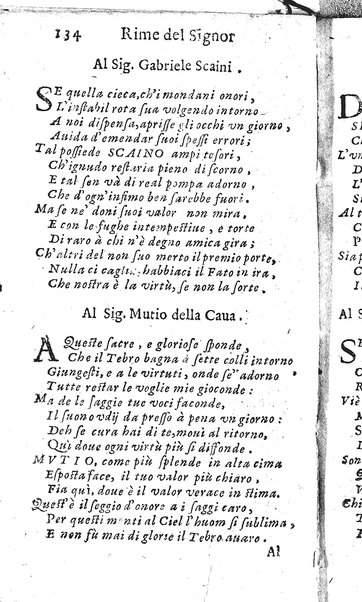 134 Rime del Signor
Al Sig. Gabriele Scaini.
SE quella cieca, ch'i mondani onori,
L'instabil rota sua volgendo intorno
A noi dispensa, aprisse gli occhi vn giorno,
Auida d'emendar suoi spessi errori;
Tal possiede SCAINO ampi tesori,
Ch'ignudo restaria pieno di scorno,
E tal sen và di real pompa adorno,
Che d'ogn'infimo ben sarebbe fuori.
Ma se ne' doni suoi valor non mira.
E con le fughe intempestiue, e torte
Di raro à chi n'è degno amica gira;
Ch'altri del non suo merto il premio porte,
Nulla ci caglia, habbiaci il Fato in ira,
Che nostra è la virtù, se non la sorte.
Al Sig. Mutio della Caua.
A Queste sacre, e gloriose sponde,
Che il Tebro bagna à sette colli intorno
Giungesti, e a le virtuti, onde se' adorno
Tutte restar le voglie mie gioconde:
Ma de le saggie tue voci faconde,
Il suono vdij da presso à pena vn giorno:
Deh se cura hai di te, moui al ritorno,
Quì doue ogni virtù più si diffonde.
MVTIO, come più splende in alta cima
Esposta face, il tuo valor più chiaro,
Fia quì, doue è il valor verace in stima.
Quest'è il seggio d'onore a i saggi caro,
Per questi monti al Ciel l'huom si sublima,
E non fù mai di glorie il Tebro auaro.
Al